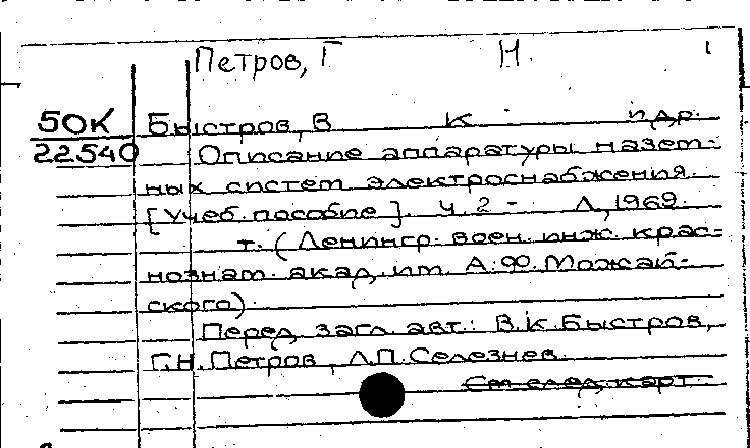 Петров, Г Н.
50К Быстров, В К. и др.
22540 Описание аппаратуры назем-
ных систем электроснабжения.
[Учеб. пособие]. Ч. 2 - Л, 1969.
т. (Ленингр. воен. инж. крас-
нознам. акад. им. А. Ф. Можай-
ского).
Перед загл. авт.: В.К. Быстров,
Г.Н. Петров, Л.П. Селезнев.
См. след. карт.